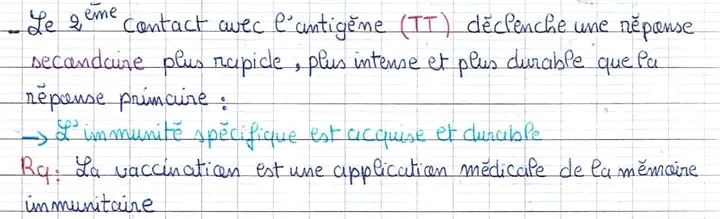 - Le 2ème Contact avec l'antigène (TT) déclenche une réponse
secondaire plus rapide, plus intense et plus durable que la
réponse primaire :
→ L'immunité spécifique est acquise et durable
Rq: La vaccination est une application médicale de la mémoire
immunitaire